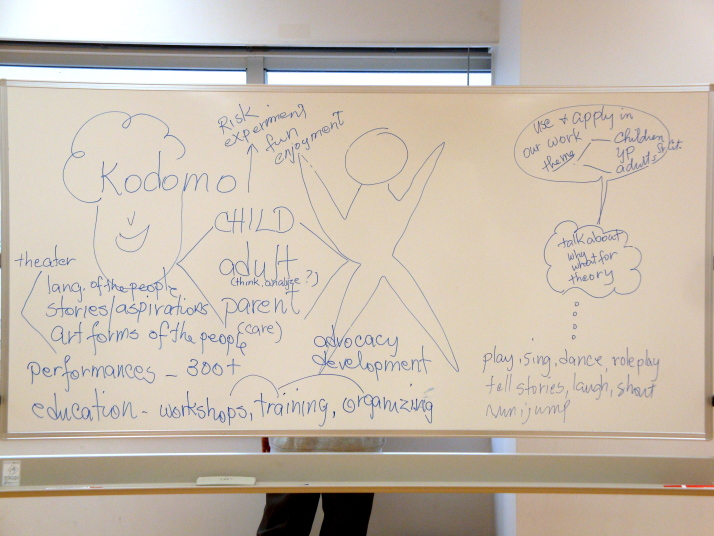 Kodomo
Risk
experiment
fun
enjoyment
CHILD
adult
(think, analize?)
parent
(care)
theater
lang. of the people
stories/aspirations
art forms of the people
performances - 300+
education - workshops, training, organizing
advocacy
development
use & apply in
our work
theme
children
YP
adults
talk about
why
what for
theory
play, sing, dance, roleplay
tell stories, laugh, shout
run, jump